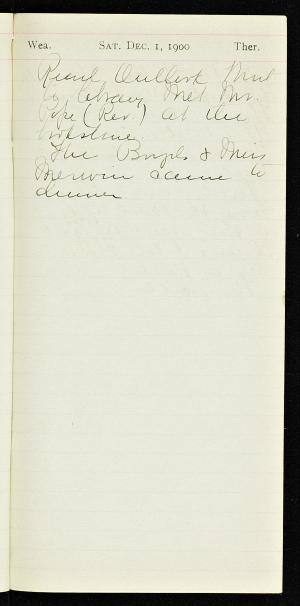 Wea. SAT. DEC. 1, 1900 Ther.
Read Outlook Went
to library Met Mr.
Pope (Rev.) at the
bookstore.
The Boyds & Miss
Merwin came to
dinner